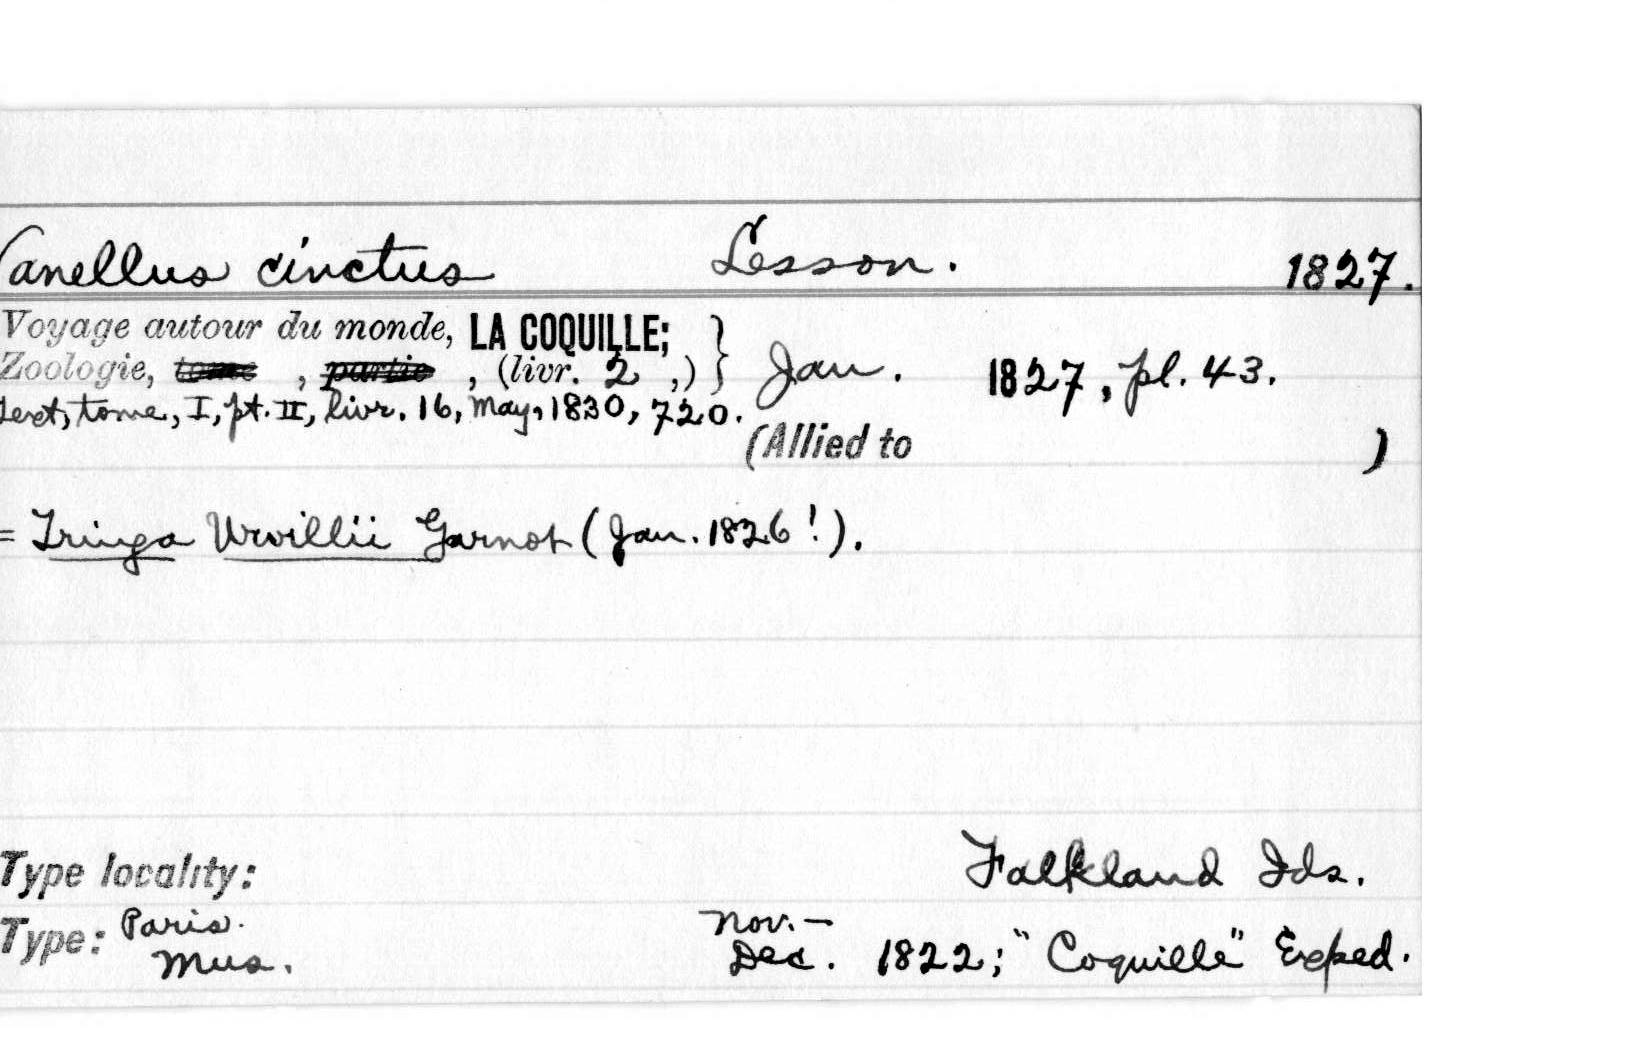 Vanellus cinctus Lesson. 1827.
Voyage autour du monde, LA COQUILLE; }
Zoologie, tome , partie , (livr. 2 ,) Jan. 1827, pl. 43.
Text, tome, I, pt. II, livr. 16, May, 1830, 720.
(Allied to )
= Tringa Urvillii Garnot (Jan. 1826!).
Type locality: Falkland Ids.
Type: Paris. Nov. –
Mus. Dec. 1822; "Coquille" Exped.